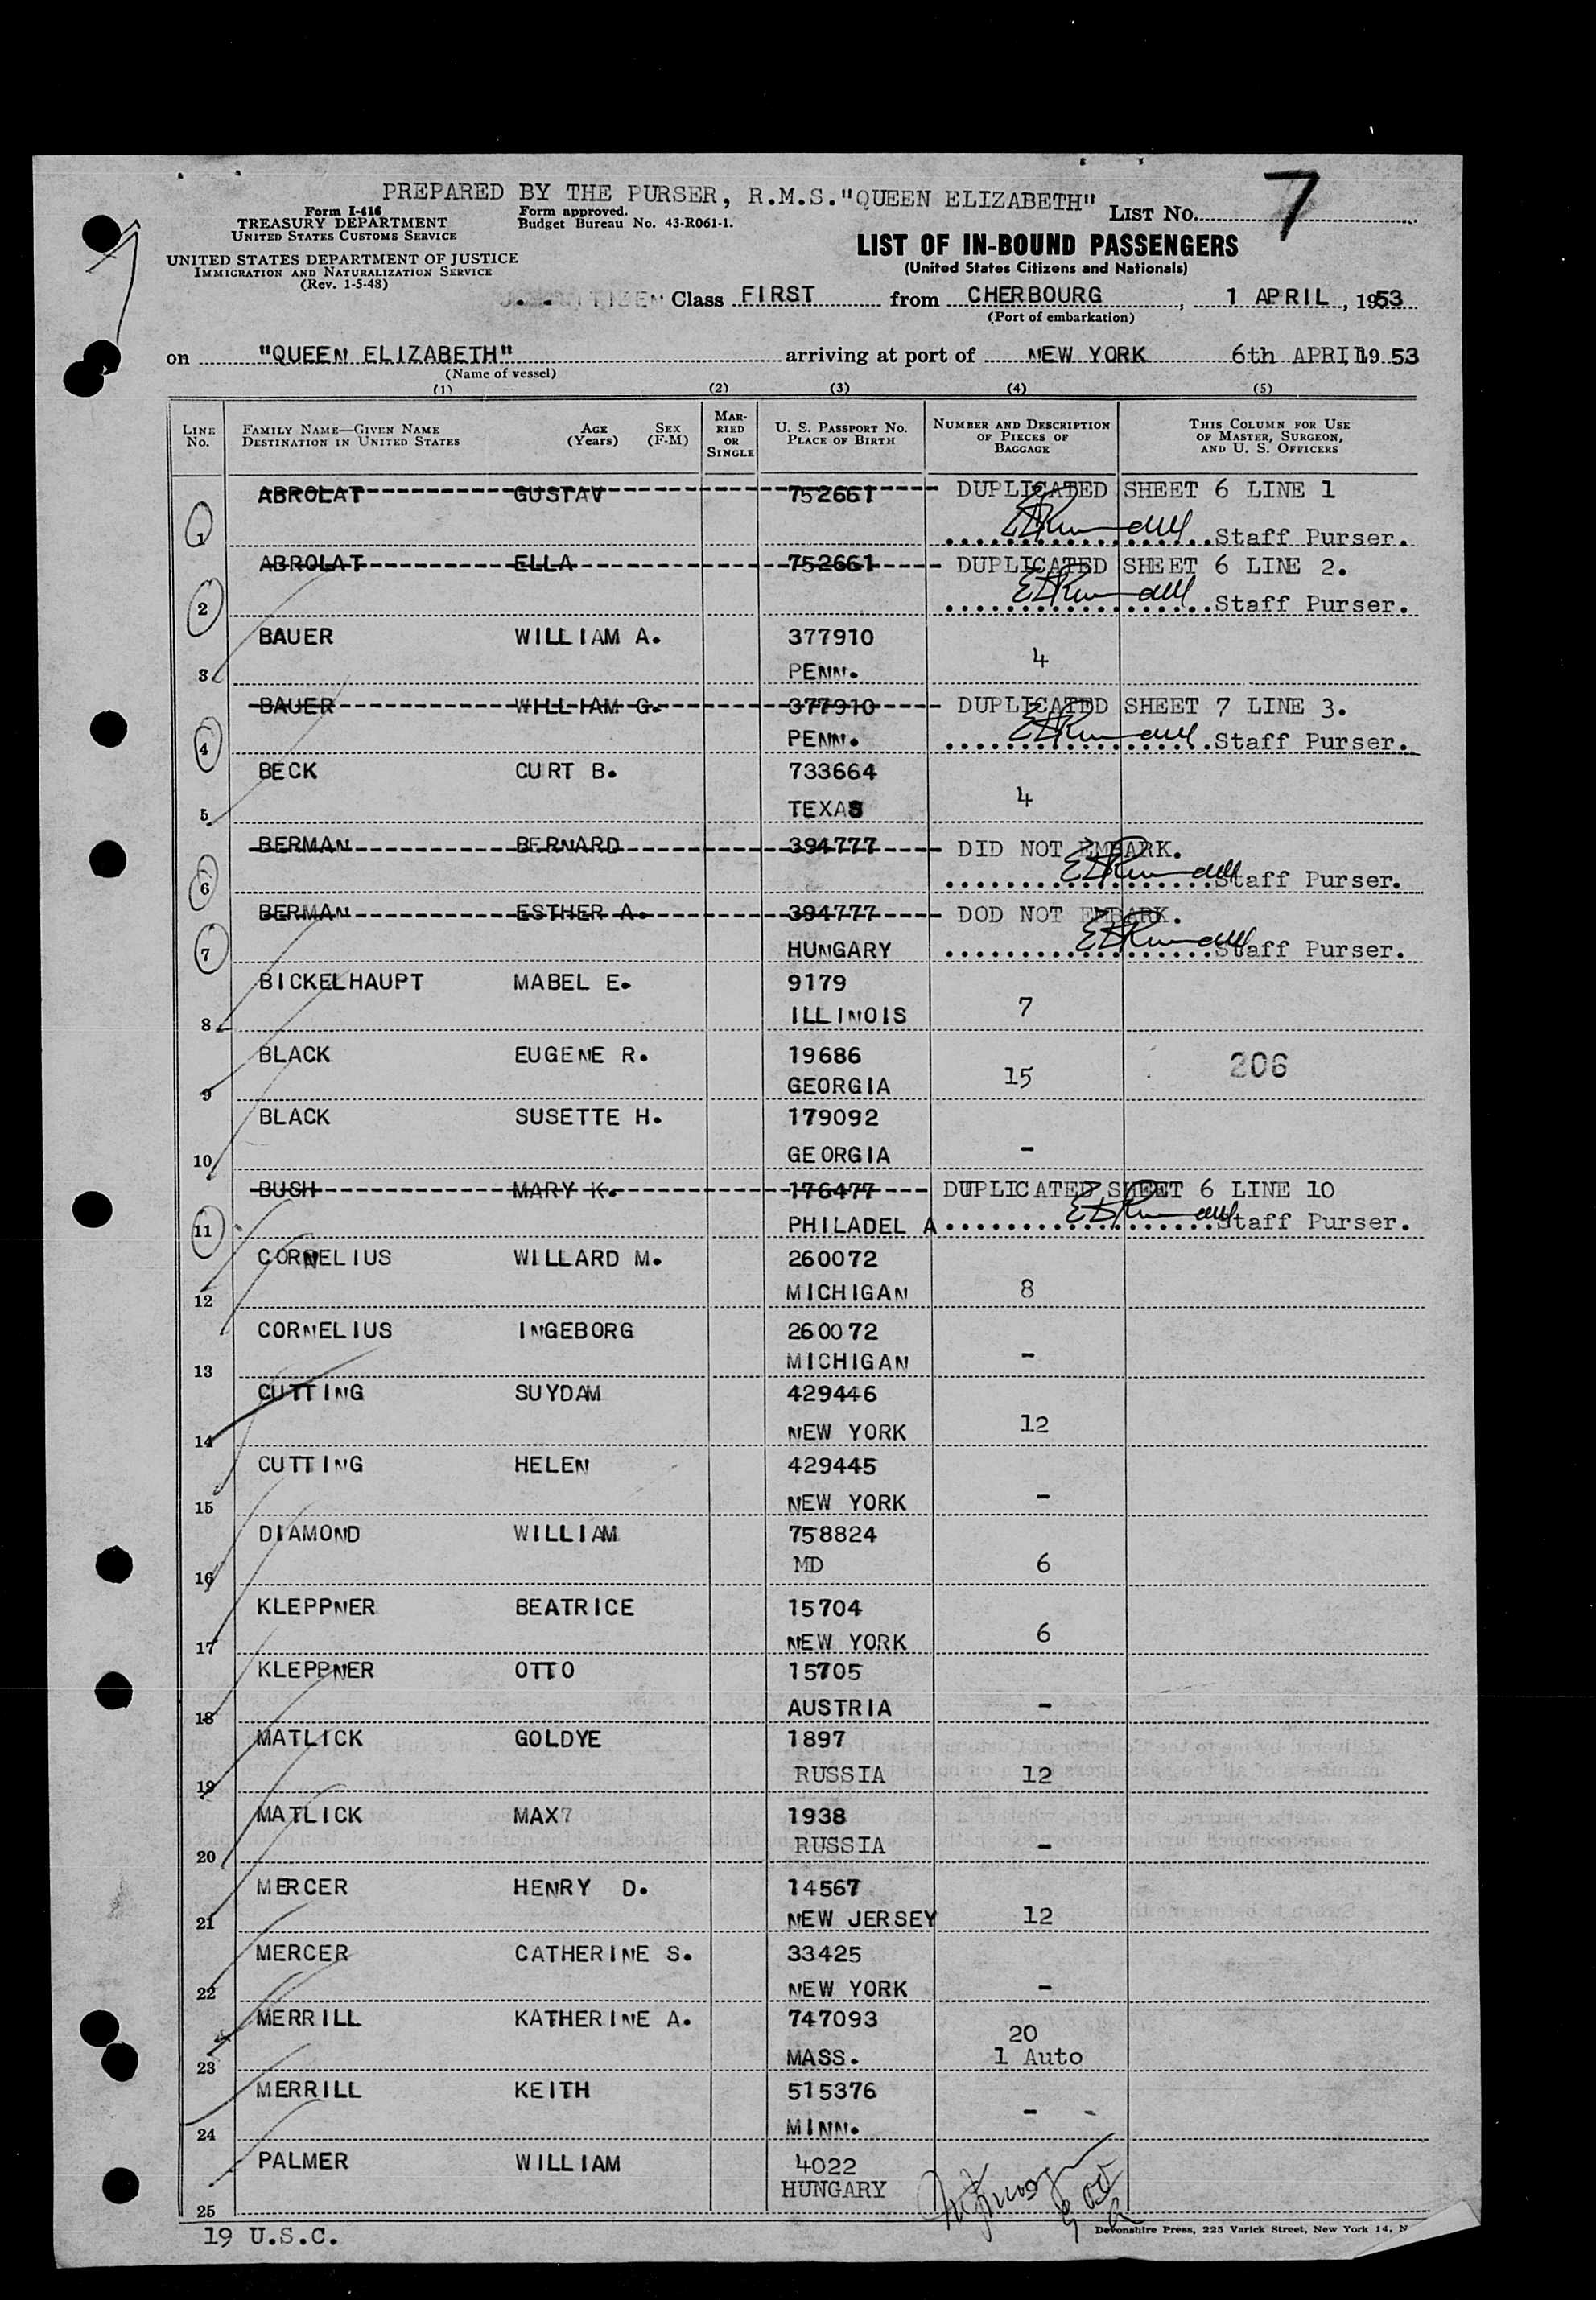 PREPARED BY THE PURSER, R.M.S. "QUEEN ELIZABETH"
Form I-416
TREASURY DEPARTMENT
UNITED STATES CUSTOMS SERVICE
Form approved.
Budget Bureau No. 43-R061-1.
LIST NO. 7
UNITED STATES DEPARTMENT OF JUSTICE
IMMIGRATION AND NATURALIZATION SERVICE
(Rev. 1-5-48)
LIST OF IN-BOUND PASSENGERS
(United States Citizens and Nationals)
Class FIRST from CHERBOURG, 1 APRIL, 1953
(Port of embarkation)
on "QUEEN ELIZABETH" arriving at port of NEW YORK 6th APRIL 1953
(Name of vessel)
(1) (2) (3) (4) (5)
LINE No.
FAMILY NAME—GIVEN NAME
DESTINATION IN UNITED STATES
AGE (Years)
SEX (F-M)
MARRIED OR SINGLE
U. S. PASSPORT NO.
PLACE OF BIRTH
NUMBER AND DESCRIPTION OF PIECES OF BAGGAGE
THIS COLUMN FOR USE OF MASTER, SURGEON, AND U. S. OFFICERS
ABROLAT GUSTAV 752661 DUPLICATED SHEET 6 LINE 1
1 Staff Purser.
ABROLAT ELLA 752661 DUPLICATED SHEET 6 LINE 2.
2 Staff Purser.
BAUER WILLIAM A. 377910
3 PENN. 4
BAUER WILLIAM G. 377910 DUPLICATED SHEET 7 LINE 3.
4 PENN. Staff Purser.
BECK CURT B. 733664
5 TEXAS 4
BERMAN BERNARD 394777 DID NOT EMBARK.
6 Staff Purser.
BERMAN ESTHER A. 394777 DOD NOT EMBARK.
7 HUNGARY Staff Purser.
BICKELHAUPT MABEL E. 9179
8 ILLINOIS 7
BLACK EUGENE R. 19686 206
9 GEORGIA 15
BLACK SUSETTE H. 179092
10 GEORGIA -
BUSH MARY K. 176477 DUPLICATED SHEET 6 LINE 10
11 PHILADEL A Staff Purser.
CORNELIUS WILLARD M. 260072
12 MICHIGAN 8
CORNELIUS INGEBORG 260072
13 MICHIGAN -
CUTTING SUYDAM 429446
14 NEW YORK 12
CUTTING HELEN 429445
15 NEW YORK -
DIAMOND WILLIAM 758824
16 MD 6
KLEPPNER BEATRICE 15704
17 NEW YORK 6
KLEPPNER OTTO 15705
18 AUSTRIA -
MATLICK GOLDYE 1897
19 RUSSIA 12
MATLICK MAX7 1938
20 RUSSIA -
MERCER HENRY D. 14567
21 NEW JERSEY 12
MERCER CATHERINE S. 33425
22 NEW YORK -
MERRILL KATHERINE A. 747093 20
23 MASS. 1 Auto
MERRILL KEITH 515376
24 MINN. -
PALMER WILLIAM 4022
25 HUNGARY
19 U.S.C.
Devonshire Press, 225 Varick Street, New York 14, N